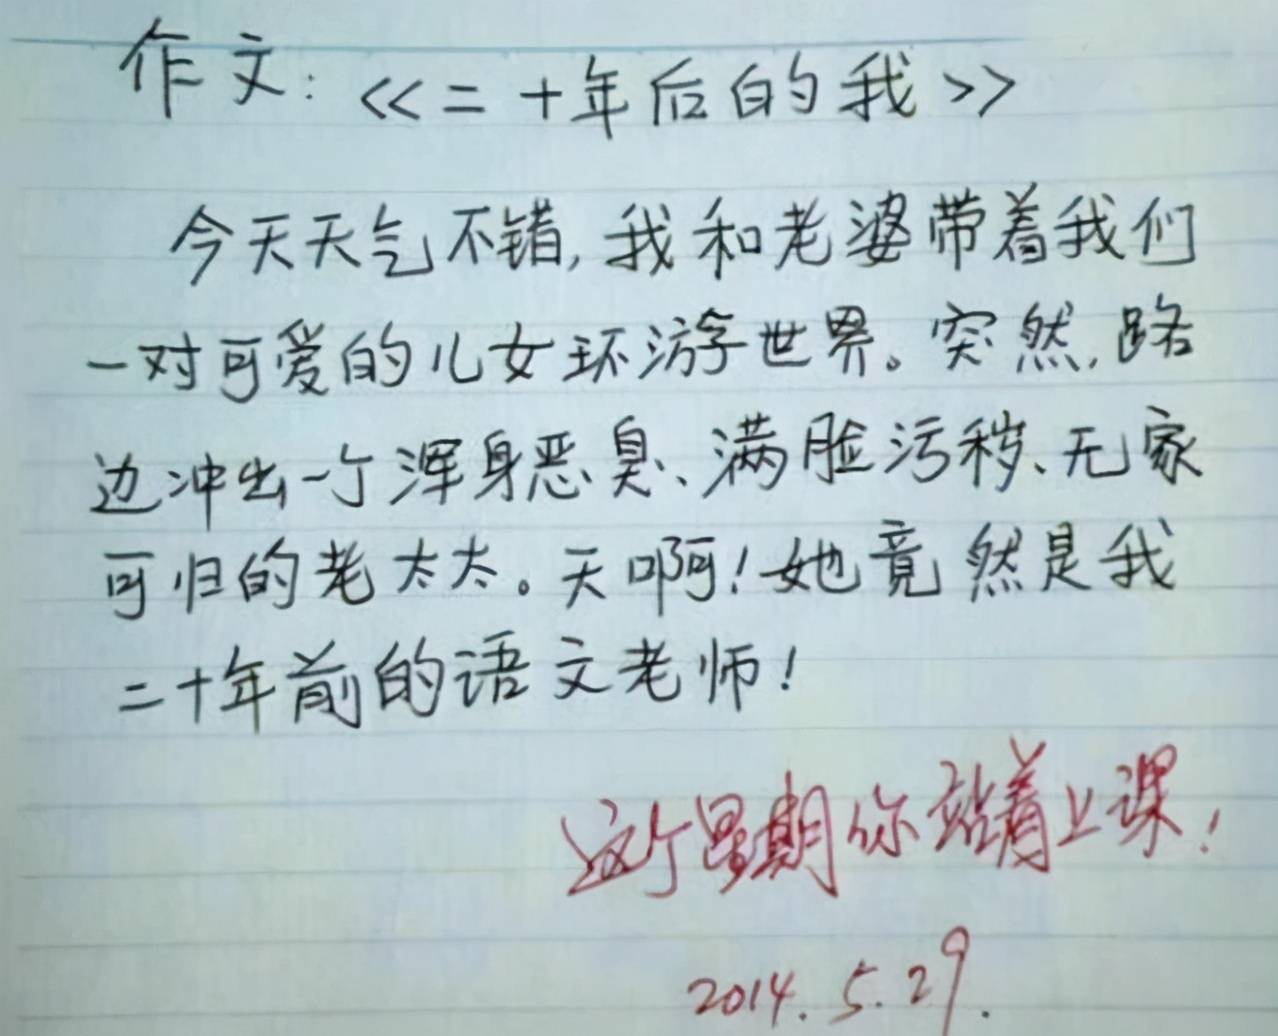 作文:<<二十年后的我>>
今天天气不错,我和老婆带着我们
一对可爱的儿女环游世界。突然,路
边冲出一个浑身恶臭、满脸污秽、无家
可归的老太太。天啊!她竟然是我
二十年前的语文老师!
这个星期你站着上课!
2014.5.29.